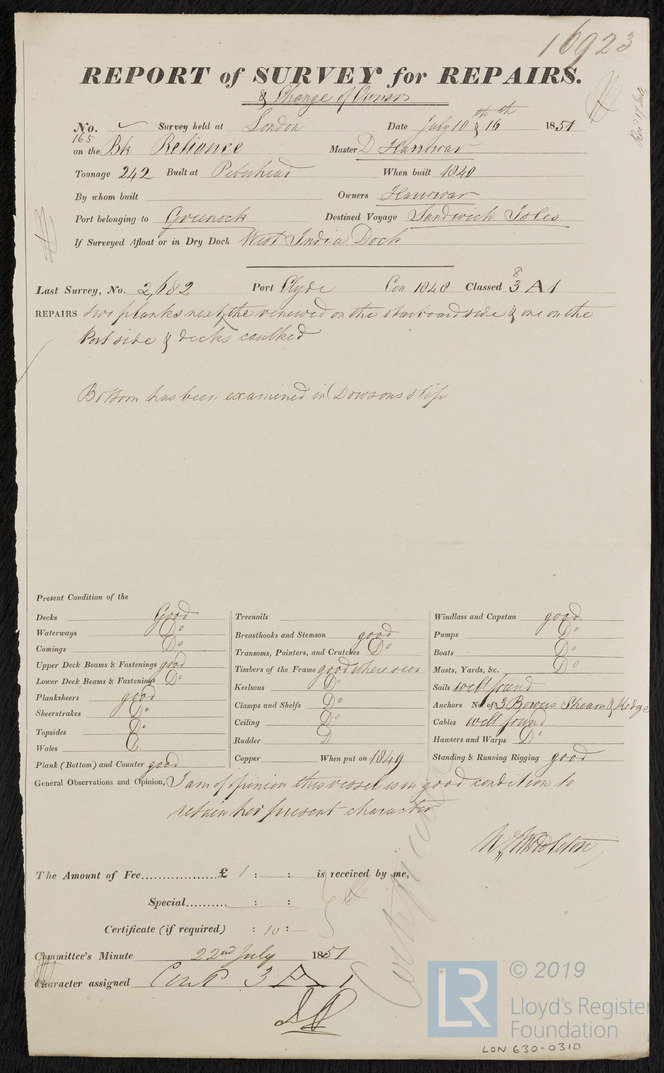 16923
REPORT of SURVEY for REPAIRS.
& Change of Owners
No. Survey held at London Date July 10th & 16th 1851
165
on the Bk Reliance Master D Harrwar
Tonnage 242 Built at Peterhead When built 1840
By whom built Owners Harrwar
Port belonging to Greenock Destined Voyage Sandwich Isles
If Surveyed Afloat or in Dry Dock West India Dock
Last Survey, No. 2,682 Port Clyde Con 1848 Classed 8/3 A 1
REPAIRS two planks next the renewed on the starboard side & one on the
Port side & decks caulked
Bottom has been examined in Dowsons slip
Present Condition of the
Decks Good
Waterways Do
Comings Do
Upper Deck Beams & Fastenings good
Lower Deck Beams & Fastenings Do
Planksheers good
Sheerstrakes Do
Topsides Do
Wales
Plank (Bottom) and Counter good
Treenails
Breasthooks and Stemson good
Transoms, Pointers, and Crutches Do
Timbers of the Frame good where seen
Keelsons Do
Clamps and Shelfs Do
Ceiling Do
Rudder D
Copper When put on 1849
Windlass and Capstan good
Pumps Do
Boats Do
Masts, Yards, &c. Do
Sails well found
Anchors No of 3 Bowers Stream & Kedge
Cables well found
Hawsers and Warps Do
Standing & Running Rigging good
General Observations and Opinion, I am of opinion this vessel is in good condition to
retain her present character
The Amount of Fee £ 1 : - : is received by me,
Special : :
Certificate (if required) : 10 : -
Committee's Minute 22nd July 1851
Character assigned Cont 3 A 1
© 2019
LR
Lloyd's Register
Foundation
LON 630-0310